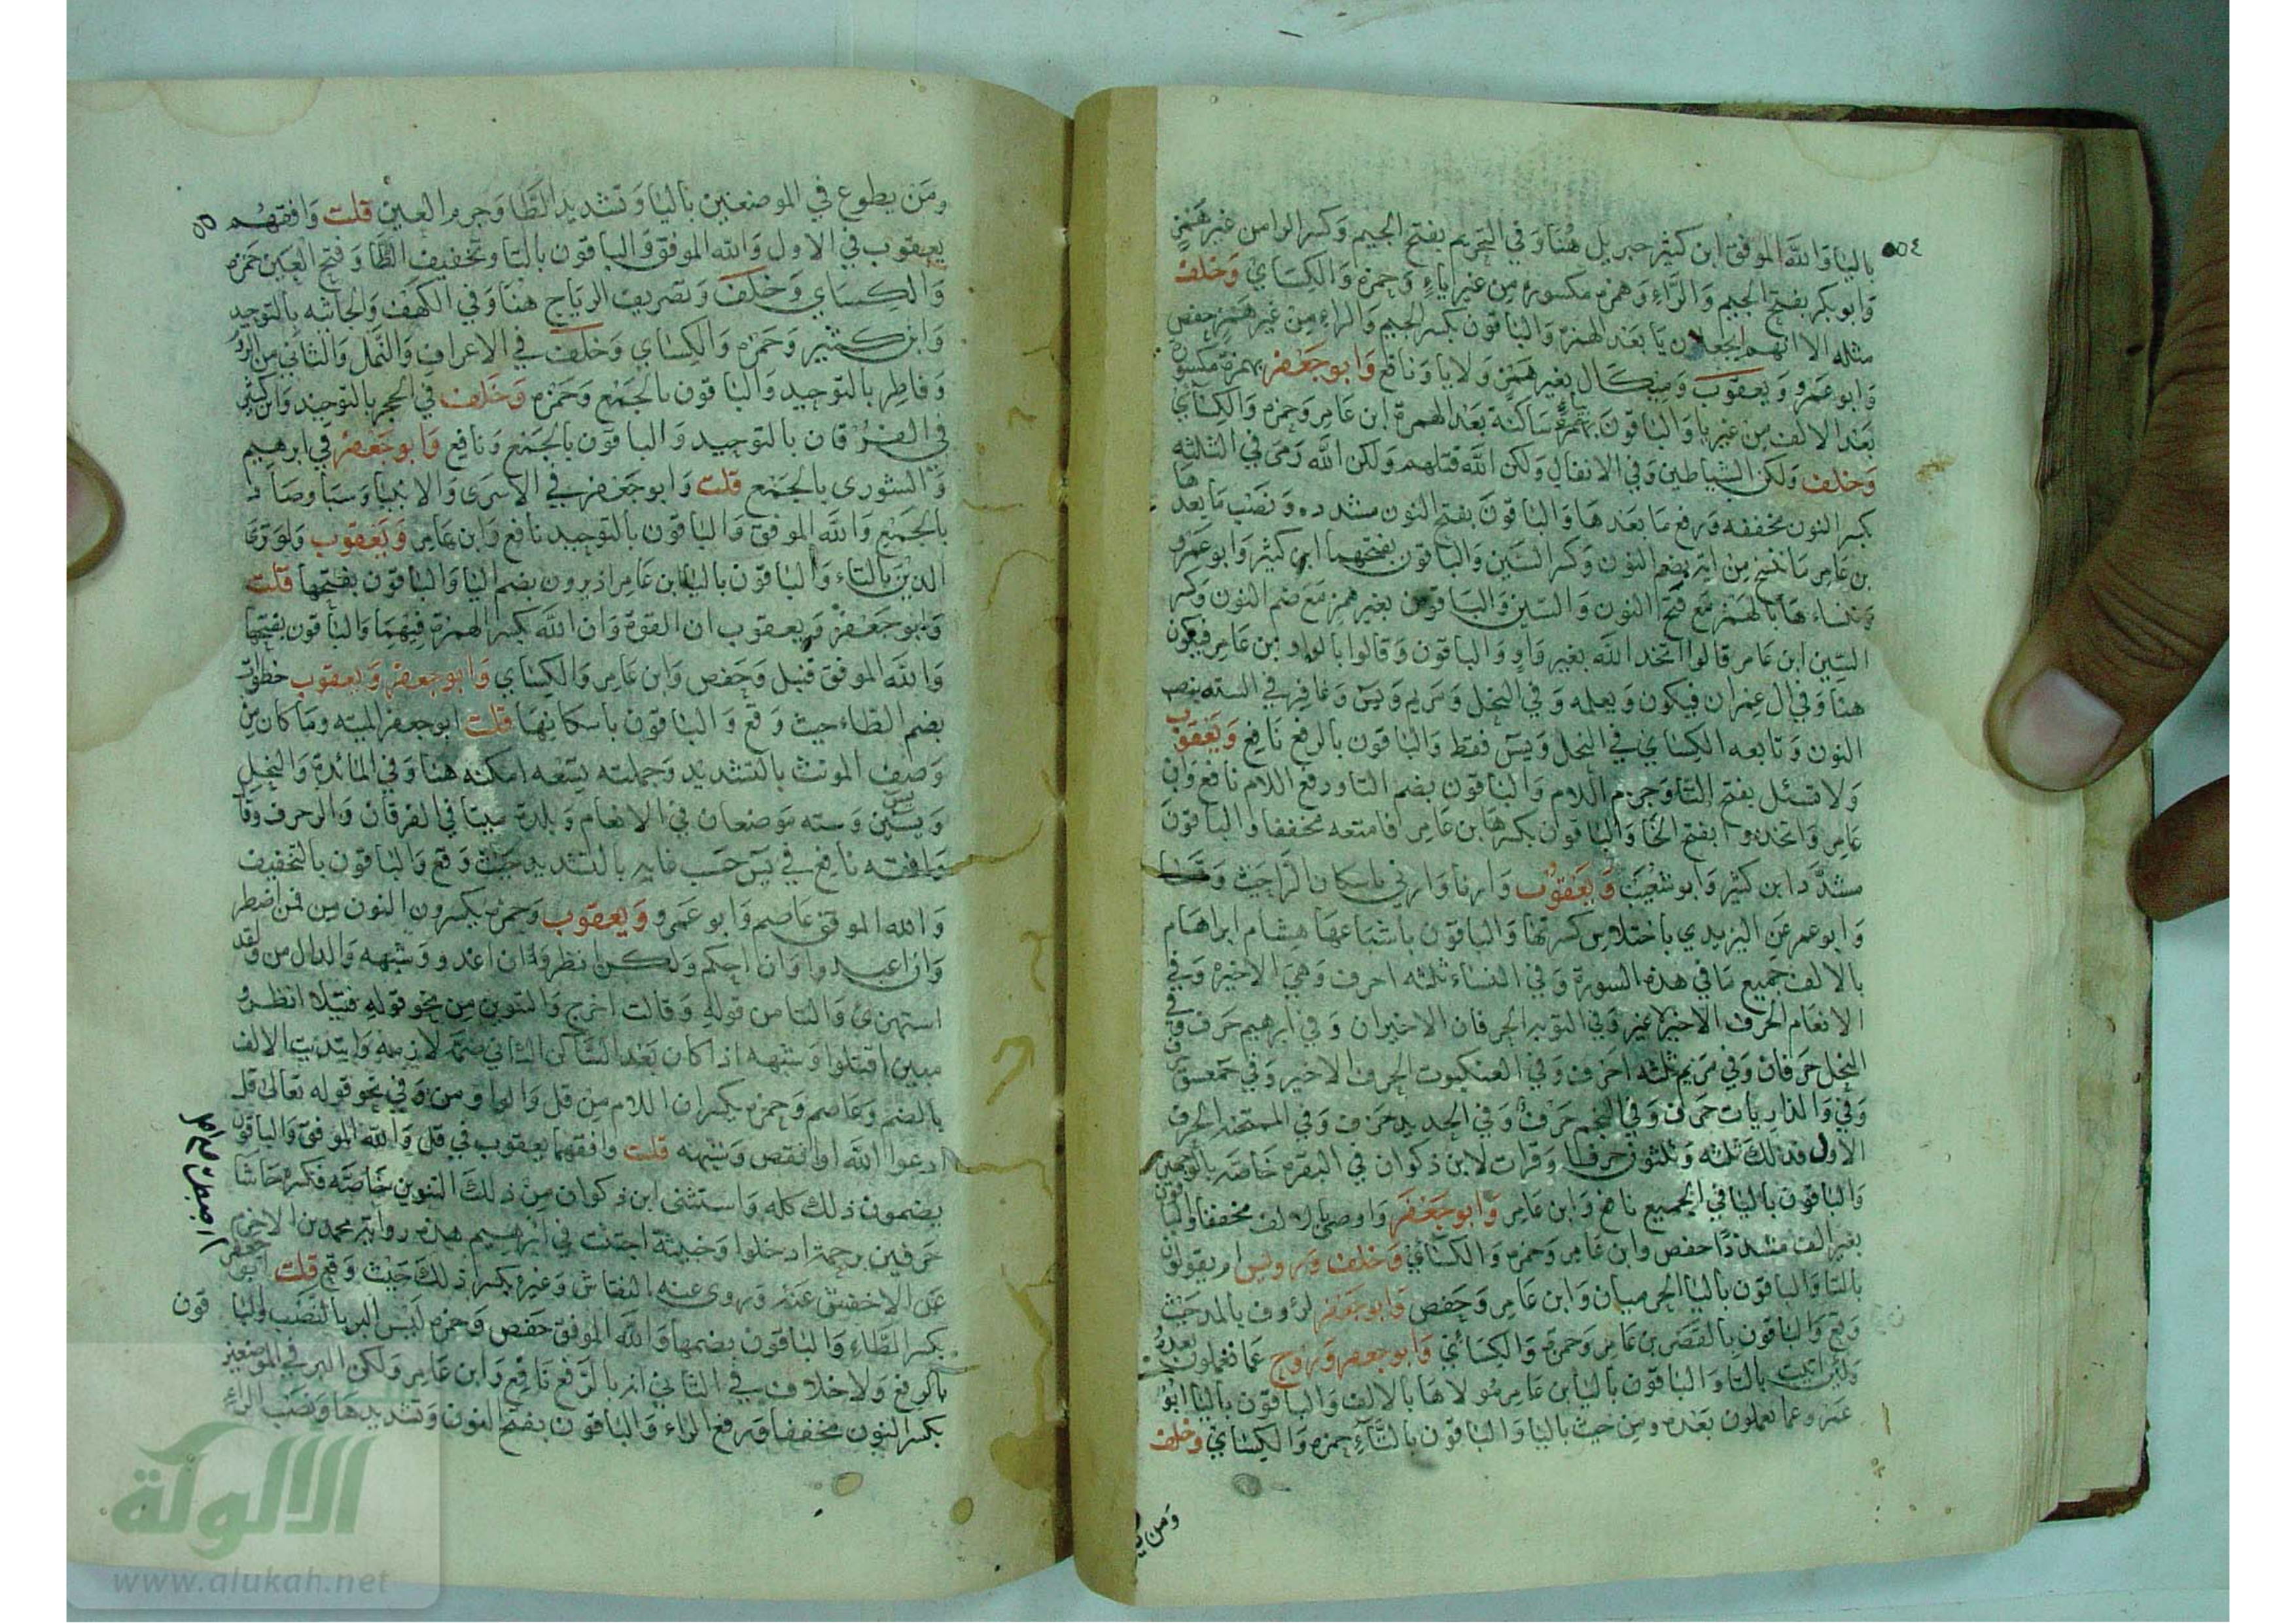 ٥٥٤
باليا والله الموفق ابن كثير جبريل هنا وفي التحريم بفتح الجيم وكسر الرا من غير همز
وابو بكر بفتح الجيم والراء وهمزه مكسوره من غير ياء وحمزه والكساي وخلف
مثله الا انهم يجعلون يا بعد الهمزه والباقون بكسر الجيم والراء من غير همز حفص
وابو عمرو ويعقوب وميكال بغير همز ولا يا ونافع وابو جعفر بهمزة مكسورة
بعد الالف من غير يا والباقون بهمزة ياء ساكنة بعد الهمزة ابن عامر وحمزه والكساي
وخلف ولكن الشياطين وفي الانفال ولكن الله قتلهم ولكن الله رمى في الثلثه
بكسر النون مخففه ورفع ما بعدها والباقون بفتح النون مشدده ونصب ما بعدها
بن عامر ما ننسخ من اية بضم النون وكسر السين والباقون بفتحهما ابن كثير وابو عمرو
وننساءها بالهمز مع فتح النون والسين والباقون بغير همز مع ضم النون وكسر
السين ابن عامر قالوا اتخذ الله بغير واو والباقون وقالوا بالواو ابن عامر فيكون
هنا وفي ال عمران فيكون ويعلمه وفي النحل ومريم ويس وغافر في السته بنصب
النون وتابعه الكساي في النحل ويس فقط والباقون بالرفع نافع ويعقوب
ولا تسئل بفتح التا وجزم اللام والباقون بضم التا ورفع اللام نافع وابن
عامر واتخذوا بفتح الخا والباقون بكسرها بن عامر فامتعه مخففا والباقون
مشددا ابن كثير وابو شعيب ويعقوب وارنا وارني باسكان الرا حيث وقعا
وابو عمر عن اليزيدي باختلاس كسرتها والباقون باشباعها هشام ابراهام
بالالف جميع ما في هذه السورة وفي النساء ثلثه احرف وهي الاخيره وفي
الانعام الحرف الاخير وفي التوبه الحرفان الاخيران وفي ابرهيم حرف وفي
النحل حرفان وفي مريم ثلثه احرف وفي العنكبوت الحرف الاخير وفي حمعسق
وفي والذاريات حرف وفي النجم حرف وفي الحديد حرف وفي الممتحنه الحرف
الاول فذلك ثلثه وثلثون حرفا وقرات لابن ذكوان في البقره خاصه بالوجهين
والباقون باليا في الجميع نافع وابن عامر وابو جعفر واوصى بالالف مخففا والباقون
بغير الف مشددا حفص وابن عامر وحمزه والكساي وخلف ورويس ام يقولون
بالتا والباقون باليا الحرميان وابن عامر وحفص وابو جعفر لرؤوف بالمد حيث
وقع والباقون بالقصر بن عامر وحمزة والكسائي وابو جعفر وروح عما تعملون بعده
ولئن اتيت بالتا والباقون باليا بن عامر مولاها بالالف والباقون باليا ابو
عمرو عما يعملون بعده ومن حيث باليا والباقون بالتاء حمزه والكساي وخلف
ومن
ومن يطوع في الموضعين باليا وتشديد الطا وجزم العين قلت وافقهم
يعقوب في الاول والله الموفق والباقون بالتا وتخفيف الطا وفتح العين حمزه
والكساي وخلف وتصريف الرياح هنا وفي الكهف والجاثيه بالتوحيد
وابن كثير وحمزه والكساي وخلف في الاعراف والنمل والثاني من الروم
وفاطر بالتوحيد والباقون بالجمع وحمزه وخلف في الحجر بالتوحيد وابن كثير
في الفرقان بالتوحيد والباقون بالجمع ونافع وابو جعفر في ابرهيم
والشورى بالجمع قلت وابو جعفر في الاسرى والانبيا وسبا وصاد
بالجمع والله الموفق والباقون بالتوحيد نافع وابن عامر ويعقوب ولو ترى
الذين بالتاء والباقون باليا ابن عامر اذ يرون بضم اليا والباقون بفتحها قلت
وابو جعفر ويعقوب ان القوة وان الله بكسر الهمزة فيهما والباقون بفتحها
والله الموفق قنبل وحفص وابن عامر والكساي وابو جعفر ويعقوب خطوات
بضم الطاء حيث وقع والباقون باسكانها قلت ابو جعفر الميته وما كان من
وصف المونث بالتشديد وجملته تسعه امكنه هنا وفي المائدة والنحل
ويس وسته موضعان في الانعام وبلدة ميتا في الفرقان والزخرف وقاف
وافقه نافع في يس حسب فانه بالتشديد حيث وقع والباقون بالتخفيف
والله الموفق عاصم وابو عمرو ويعقوب وحمزه بكسرون النون من فمن اضطر
وان اعبدوا وان احكم ولكن انظر وان اغدو وشبهه والدال من ولقد
استهزئ والتا من قوله وقالت اخرج والتنوين من نحو قوله فتيلا انظر و
مبين اقتلوا وشبهه اذا كان بعد الساكن الثاني ضمة لازمه وابتديت الالف
بالضم وعاصم وحمزه يكسران اللام من قل والواو من او في نحو قوله تعالى قل
ادعوا الله او انقص وشبهه قلت وافقهما يعقوب في قل والله الموفق والباقون
يضمون ذلك كله واستثنى ابن ذكوان من ذلك التنوين خاصه فكسره حاشا
حرفين برحمة ادخلوا وخبيثة اجتثت في ابرهيم هذه رواية محمد بن الاخرم
عن الاخفش عنه وروى عنه النقاش وغيره بكسر ذلك حيث وقع قلت ابو جعفر
بكسر الطاء والباقون بضمها والله الموفق حفص وحمزه ليس البر بالنصب والباقون
بالرفع ولا خلاف في الثاني انه بالرفع نافع وابن عامر ولكن البر في الموضعين
بكسر النون مخففا ورفع الراء والباقون بفتح النون وتشديدها ونصب الراء
الألوكة
www.alukah.net